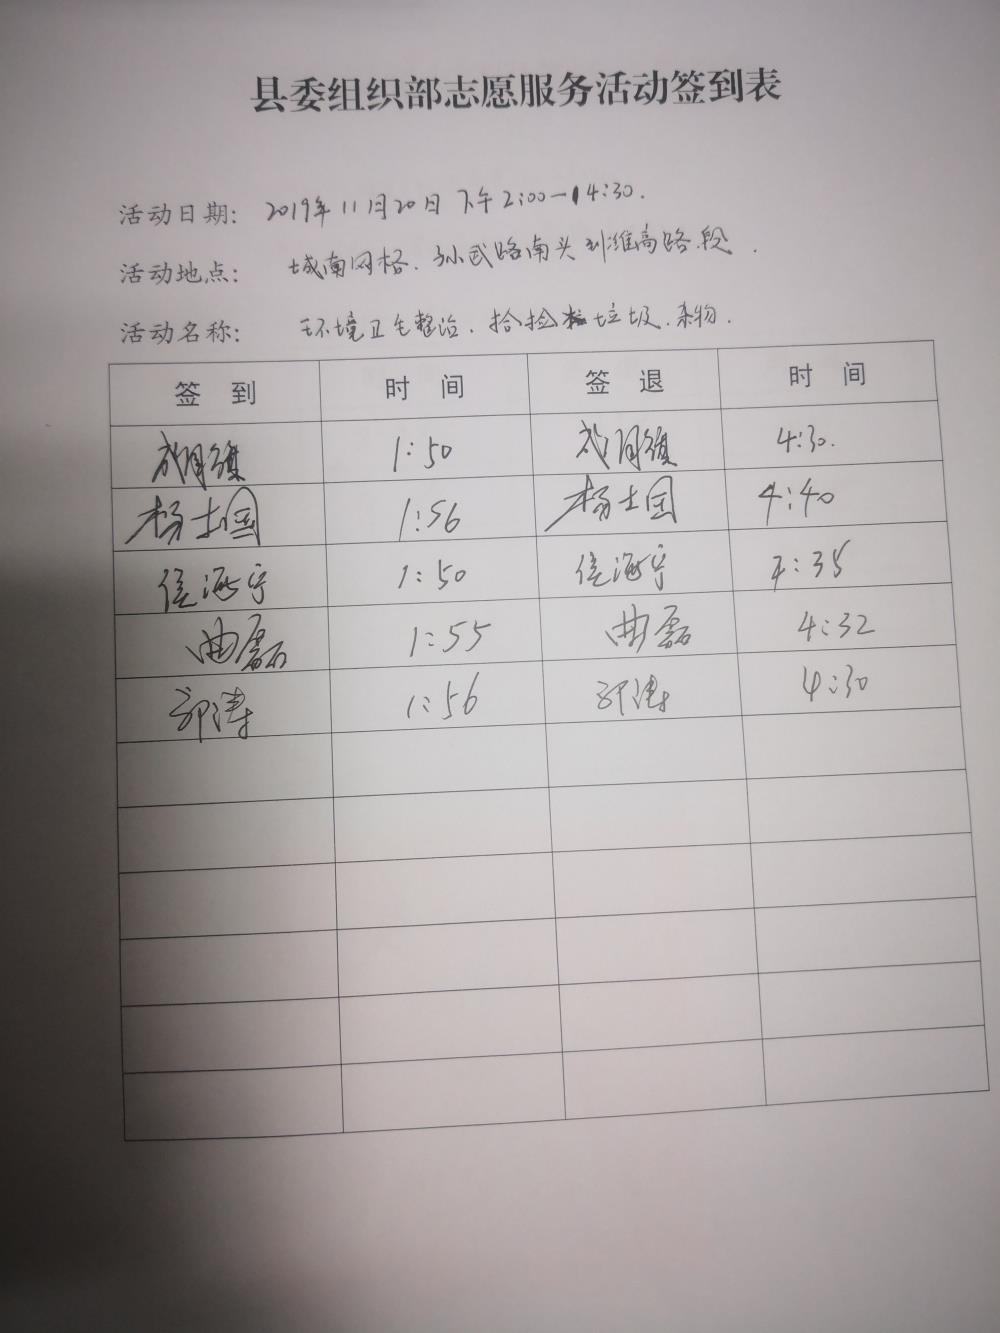 县委组织部志愿服务活动签到表
活动日期: 2019年11月20日 下午2:00-4:30.
活动地点: 城南网格、孙武路南头到潍高路段.
活动名称: 环境卫生整治、捡拾垃圾、杂物.
签 到 时 间 签 退 时 间
1:50 4:30.
杨士国 1:56 杨士国 4:40
海宁 1:50 海宁 :35
曲磊 1:55 曲磊 4:32
郭涛 1:56 郭涛 4:30